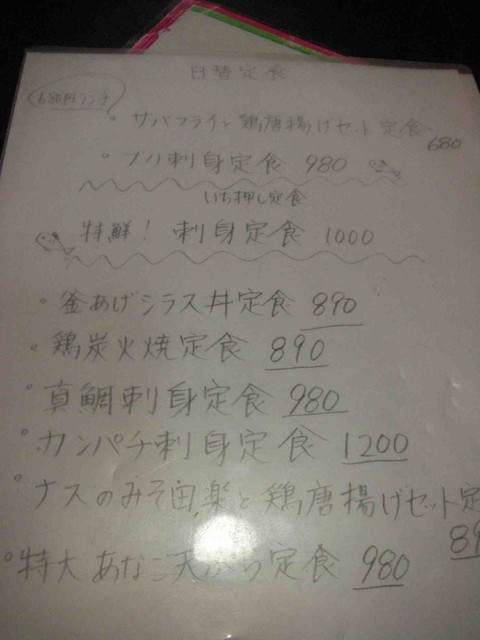 日替定食
680円ランチ
・サバフライと鶏唐揚げセット定食 680
・ブリ刺身定食 980
いち押し定食
特鮮! 刺身定食 1000
・釜あげシラス丼定食 890
・鶏炭火焼定食 890
・真鯛刺身定食 980
・カンパチ刺身定食 1200
・ナスのみそ田楽と鶏唐揚げセット定
89
・特大あなご天ぷら定食 980